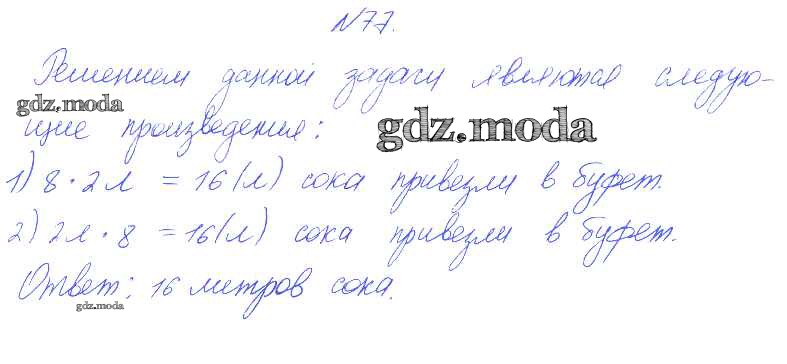 №77.
Решением данной задачи являются следую-
gdz.moda
щие произведения:
gdz.moda
1) 8·2л = 16(л) сока привезли в буфет.
2) 2л·8 = 16(л) сока привезли в буфет.
Ответ: 16 метров сока.
gdz.moda